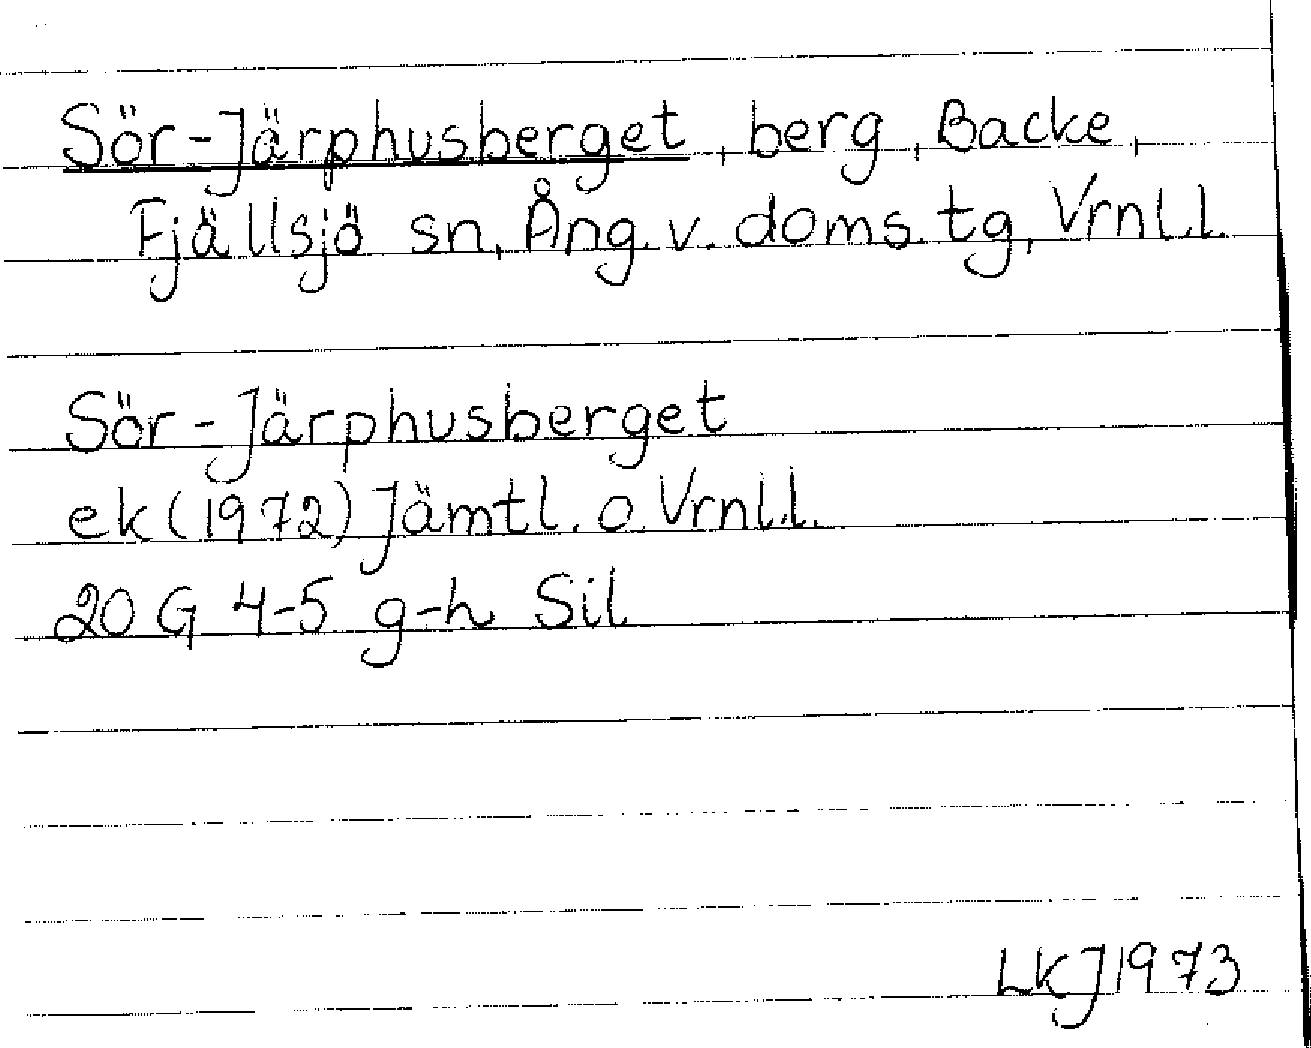 Sör-Järphusberget, berg, Backe,
Fjällsjö sn, Ång. v. doms. tg, Vrnl.l.
Sör-Järphusberget
ek (1972) Jämtl. o. Vrnl.l.
20 G 4-5 g-h Sil
LKJ 1973